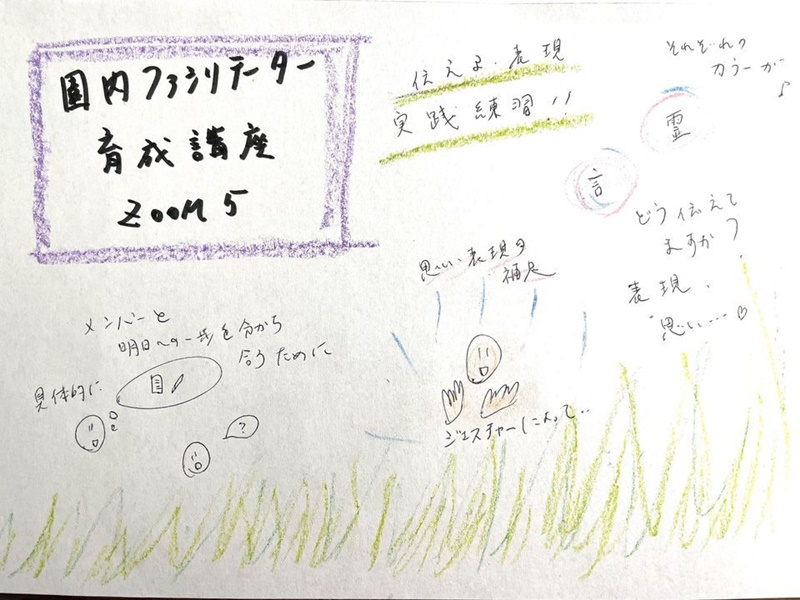 国内ファシリテーター
育成講座
ZOOM 5
伝える・表現
実践練習!!
それぞれの
カラーが♪
霊
言
どう伝えて
ますか?
表現、
思い…♡
思い、表現の
補足
メンバーと
明日への一歩を分かち
合うために
具体的に
?
ジェスチャーによって..